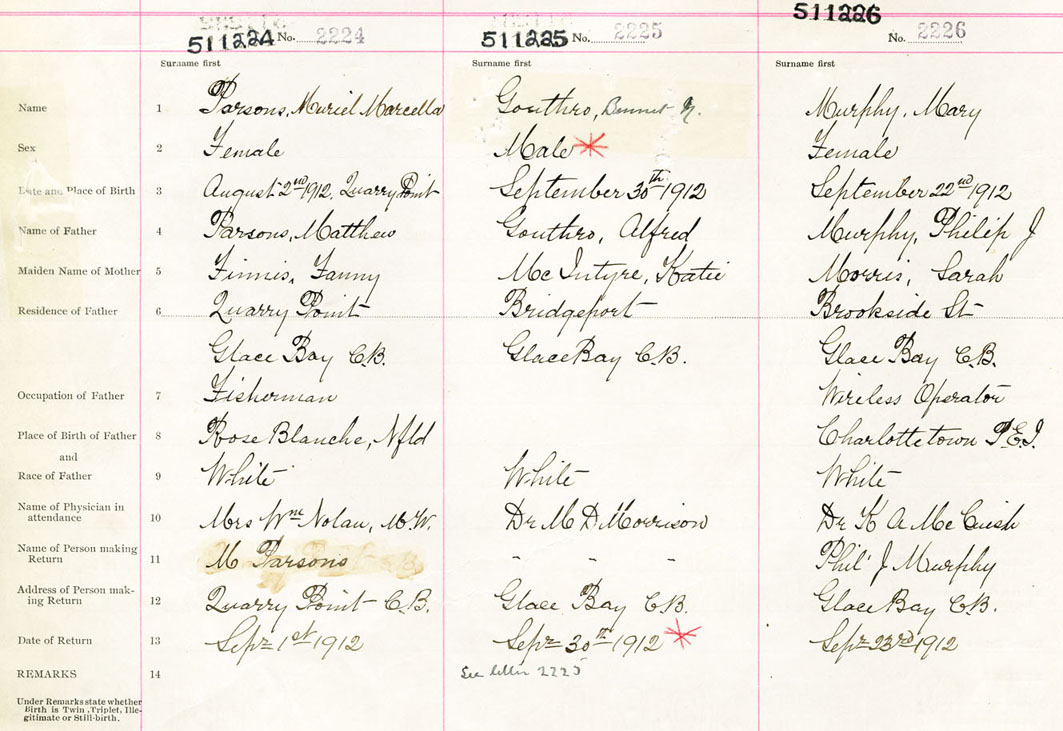 511224 No. 2224 511225 No. 2225 511226 No. 2226
Surname first Surname first Surname first
Name 1 Parsons, Muriel Marcella Gouthro, Bennet Murphy, Mary
Sex 2 Female Male Female
Date and Place of Birth 3 August 2nd 1912, Quarry Point September 30th 1912 September 22nd 1912
Name of Father 4 Parsons, Matthew Gouthro, Alfred Murphy, Philip J
Maiden Name of Mother 5 Finnis, Fanny McIntyre, Katie Morris, Sarah
Residence of Father 6 Quarry Point Bridgeport Brookside St
Glace Bay C.B. Glace Bay C.B. Glace Bay C.B.
Occupation of Father 7 Fisherman Wireless Operator
Place of Birth of Father 8 Rose Blanche, Nfld Charlottetown P.E.I.
and
Race of Father 9 White White White
Name of Physician in
attendance 10 Mrs Wm Nolan, M.W. Dr M D Morrison Dr K A McCuish
Name of Person making
Return 11 M Parsons - - - Phil J Murphy
Address of Person mak-
ing Return 12 Quarry Point C.B. Glace Bay C.B. Glace Bay C.B.
Date of Return 13 Sept 1st 1912 Sept 30th 1912 Sept 23rd 1912
REMARKS 14 See letter 2225
Under Remarks state whether
Birth is Twin, Triplet, Ille-
gitimate or Still-birth.